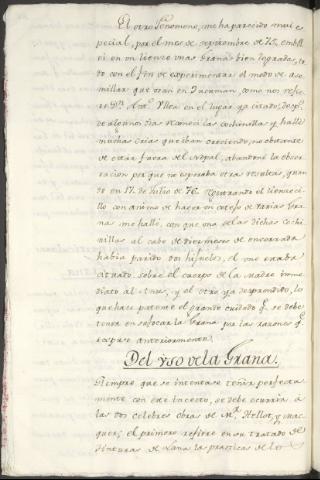 El otro fenomeno, me ha parecido mui es
pecial, por el mes de septiembre de 75, embol
vi en un lienzo unas Grana bien logradas, to
do con el fin de experimentar el modo de ase
millar que usan en Tucuman, como nos refie
re Dn. Ant.º Ulloa en el lugar ya citado, desp.s
de algunos dias reconoci las cochinillas y hallè
muchas crias que iban creciendo, no obstante
de estàr fuera del Nopal, abandonè la obser
vacion por que no esperaba otra resulta, quan
do en 17. de Julio de 76. registrando el lienzeci
llo con animo de hacer en cotejo de varias Gra
na me hallè, con que una de las dichas cochi
nillas al cabo de diez meses de encerrada
havia parido dos hijuelos, el uno estaba
situado sobre el cuerpo de la Madre inme
diato al anus, y el otro ya desprendido, lo
que hace patente el grande cuidado q.e se debe
tener en sofocar la Grana por las razones q.e
expuse anteriormente.
Del vso de la Grana.
Siempre que se intentase teñir perfecta
mente con este Insecto, se debe ocurrir à
las dos celebres obras de M.r Hellot, y Mac
quer; el primero refiere en su tratado de
tinturas de Lana las practicas de los